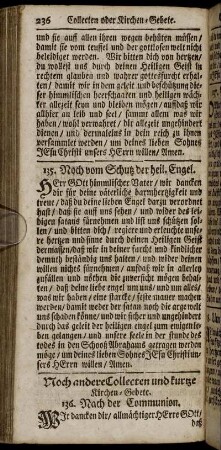 236 Collecten oder Kirchen-Gebete.
und sie auf allen ihren wegen behüten müssen/
damit sie vom teuffel und der gottlosen welt nicht
beleidiget werden. Wir bitten dich von hertzen/
du wollest uns durch deinen Heiligen Geist in
rechtem glauben und wahrer gottesfurcht erhal-
ten/ damit wir in dem geleit und beschützung die-
ser himmlischen heerschaaren und heiligen wäch-
ter allezeit seyn und bleiben mögen/ auf daß wir
allhier an leib und seel/ sammt allem was wir
haben/ wohl verwahret/ dir allezeit ungehindert
dienen/ und dermaleins in dein reich zu ihnen
versammlet werden/ um deines lieben Sohnes
JEsu Christi unsers HErrn willen/ Amen.
135. Noch vom Schutz der heil. Engel.
HErr GOtt himmlischer Vater/ wir dancken
dir für deine väterliche barmhertzigkeit und
treue/ daß du deine lieben Engel darzu verordnet
hast/ daß sie auf uns sehen/ und wider des leidi-
gen satans grimm und list uns schützen sol-
len/ und bitten dich/ regiere und erleuchte unse-
re hertzen und sinne durch deinen Heiligen Geist
dermassen/ daß wir in deiner furcht und kindlicher
demuth beständig uns halten/ und wider deinen
willen nichts fürnehmen/ auf daß wir in allerley
zufällen und nöthen die zuversicht mögen behal-
ten/ daß deine liebe engel um uns seyn/ und wir
an ihnen haben/ eine starcke/ feste mauer machen
werden/ damit weder der satan noch die arge welt
uns schaden könne/ und wir sicher und ungehindert
durch das geleit der heiligen engel zum ewigen le-
ben gelangen/ und unsere seele in der stunde des
todes in den Schooß Abrahams getragen werden
möge/ um deines lieben Sohnes JEsu Christi un-
sers HErrn willen/ Amen.
Noch andere Collecten und kurtze
Kirchen-Gebete.
136. Nach der Communion.
WIr dancken dir/ allmächtiger HErre GOtt/
daß